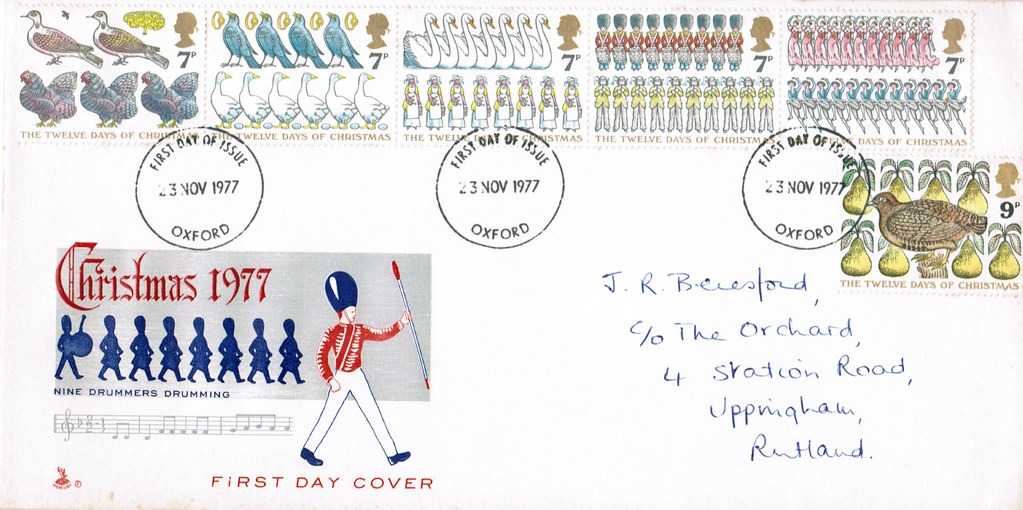 7P
7P
7P
7P
7P
THE TWELVE DAYS OF CHRISTMAS
THE TWELVE DAYS OF CHRISTMAS
THE TWELVE DAYS OF CHRISTMAS
THE TWELVE DAYS OF CHRISTMAS
THE TWELVE DAYS OF CHRISTMAS
FIRST DAY OF ISSUE
23 NOV 1977
OXFORD
FIRST DAY OF ISSUE
23 NOV 1977
OXFORD
FIRST DAY OF ISSUE
23 NOV 1977
OXFORD
9P
THE TWELVE DAYS OF CHRISTMAS
Christmas 1977
NINE DRUMMERS DRUMMING
FIRST DAY COVER
J. R. Beresford,
c/o The Orchard,
4 Station Road,
Uppingham,
Rutland.